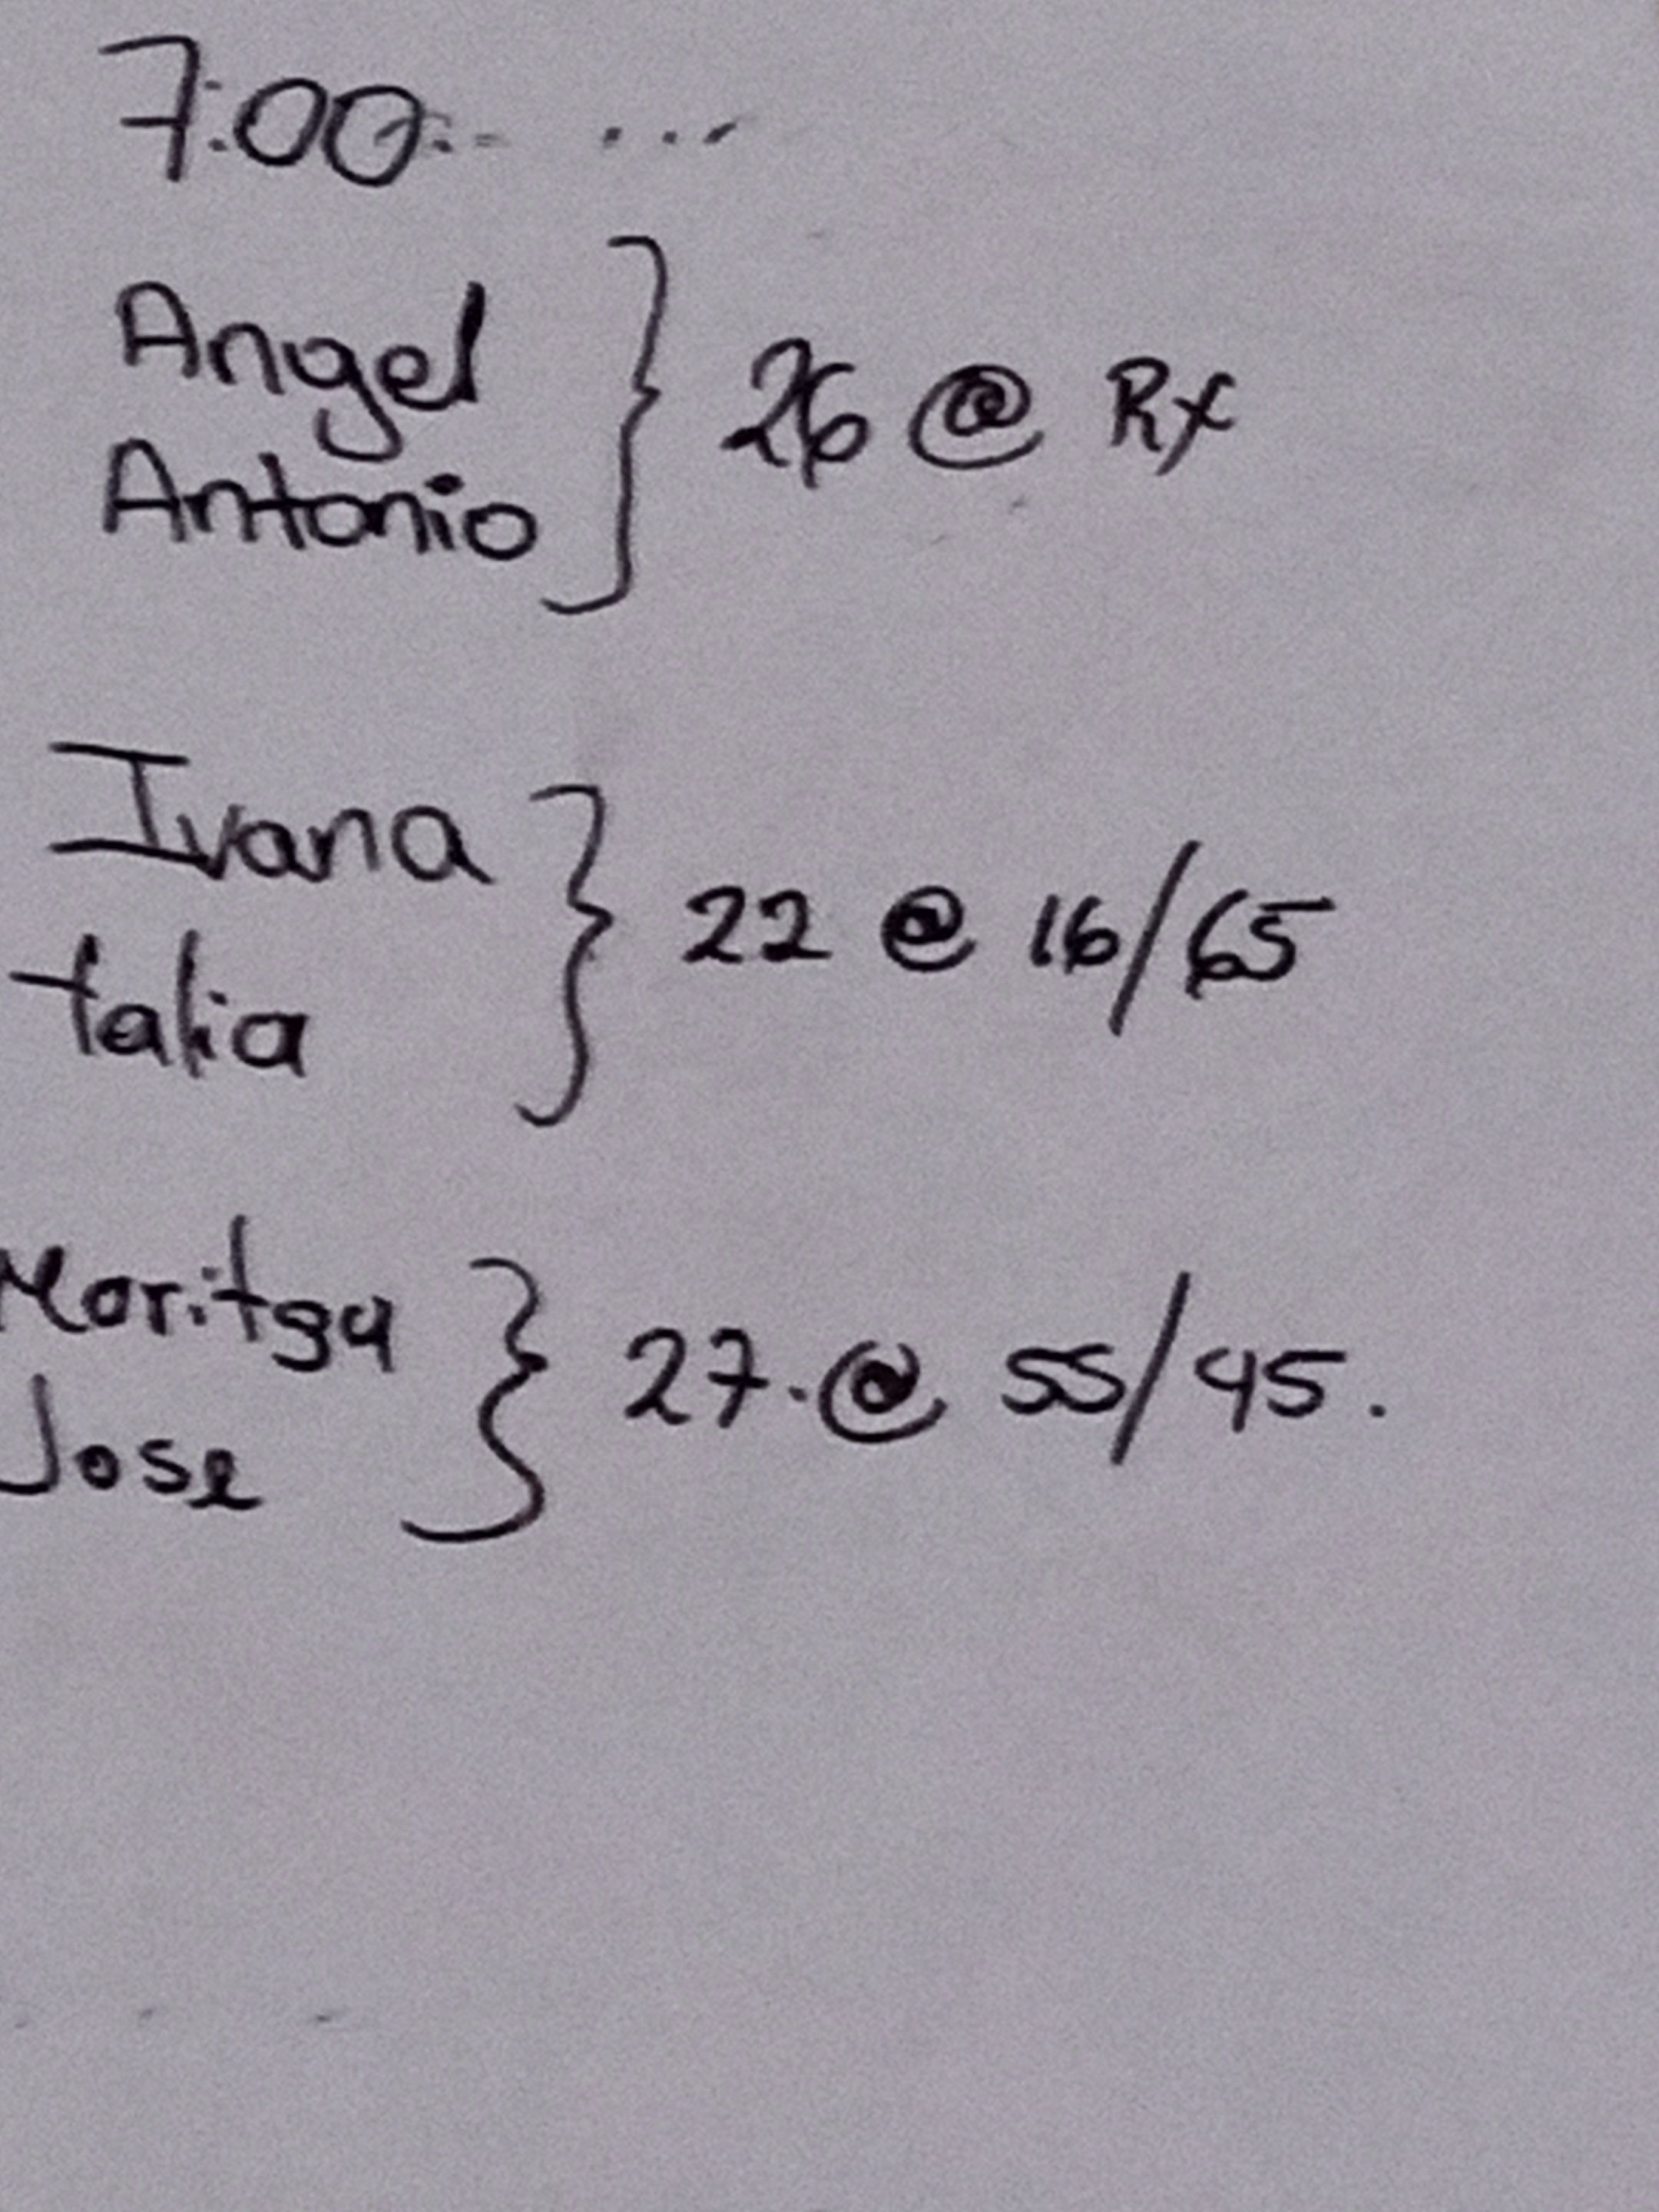 7:00
Angel
Antonio } 26 @ Rx
Ivana
talia } 22 @ 16/65
Moritza
Jose } 27. @ 55/45.